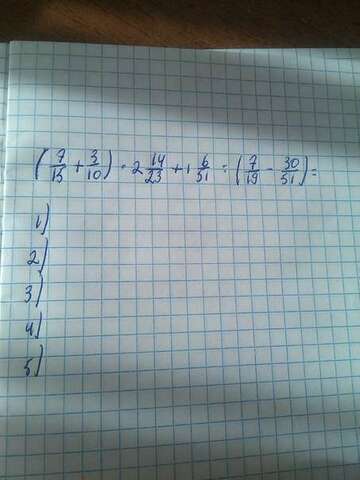 (7/15 + 3/10) · 2 14/23 + 1 6/51 : (7/19 - 30/51) =
1)
2)
3)
4)
5)